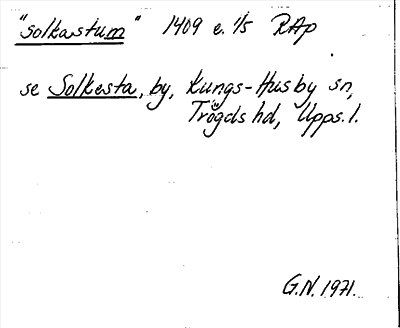 "Solkastum" 1409 e. 1/5 RAp
se Solkesta, by, Kungs-Husby sn,
Trögds hd, Upps. l.
G.N. 1971.